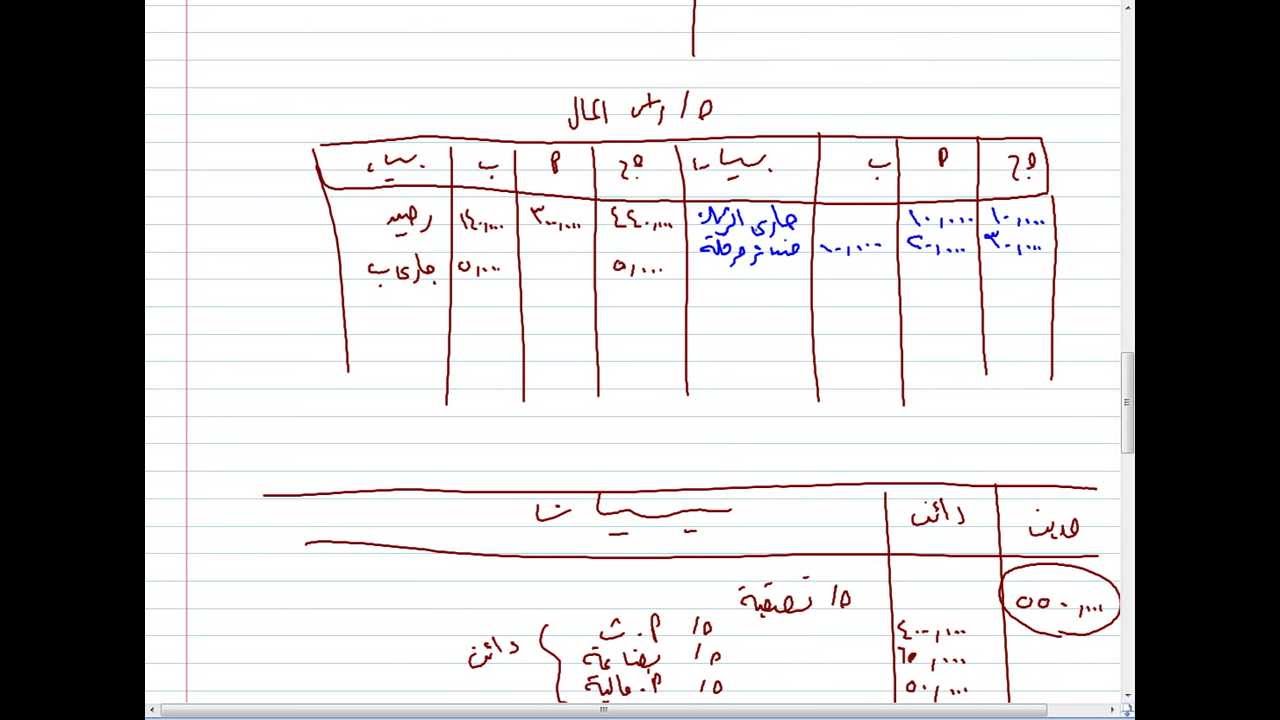 ح/ رأس المال
مج أ ب بيانات مج أ ب بيان
١٠,٠٠٠ ١٠,٠٠٠ جارى الشركاء ٤٤٠,٠٠٠ ٣٠٠,٠٠٠ ١٤٠,٠٠٠ رصيد
٣٠,٠٠٠ ٢٠,٠٠٠ ١٠,٠٠٠ خسائر مرحلة
٥,٠٠٠ ٥,٠٠٠ جارى ب
مدين دائن بيانات
٥٥٠,٠٠٠ ح/ تصفية
٤٠٠,٠٠٠ ح/ أ. ث
ح/ بضاعة دائن
٥٠,٠٠٠ ح/ أ. مالية